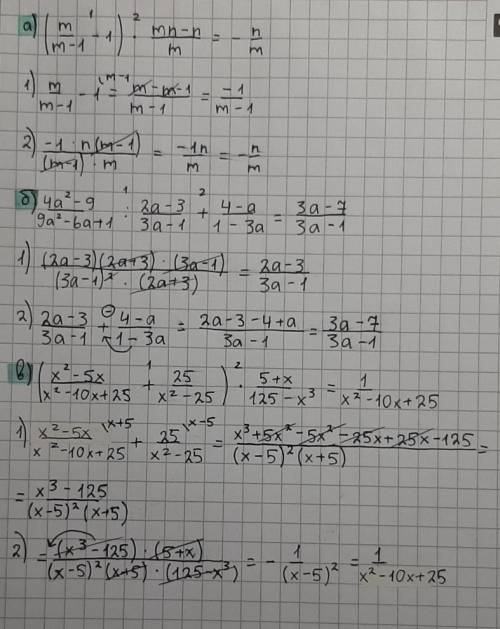 а) (m/(m-1) - 1) · (mn-n)/m = - n/m
1) m/(m-1) - 1 \m-1 = (m-m-1)/(m-1) = -1/(m-1)
2) (-1 · n(m-1))/((m-1) · m) = -1n/m = - n/m
б) (4a²-9)/(9a²-6a+1) : (2a-3)/(3a-1) + (4-a)/(1-3a) = (3a-7)/(3a-1)
1) ((2a-3)(2a+3) · (3a-1))/((3a-1)² · (2a+3)) = (2a-3)/(3a-1)
2) (2a-3)/(3a-1) + (4-a)/(1-3a) = (2a-3-4+a)/(3a-1) = (3a-7)/(3a-1)
в) ((x²-5x)/(x²-10x+25) + 25/(x²-25)) · (5+x)/(125-x³) = 1/(x²-10x+25)
1) (x²-5x)/(x²-10x+25) \x+5 + 25/(x²-25) \x-5 = (x³+5x²-5x²-25x+25x-125)/((x-5)²(x+5)) =
= (x³-125)/((x-5)²(x+5))
2) = ((x³-125) · (5+x))/((x-5)²(x+5) · (125-x³)) = - 1/(x-5)² = 1/(x²-10x+25)